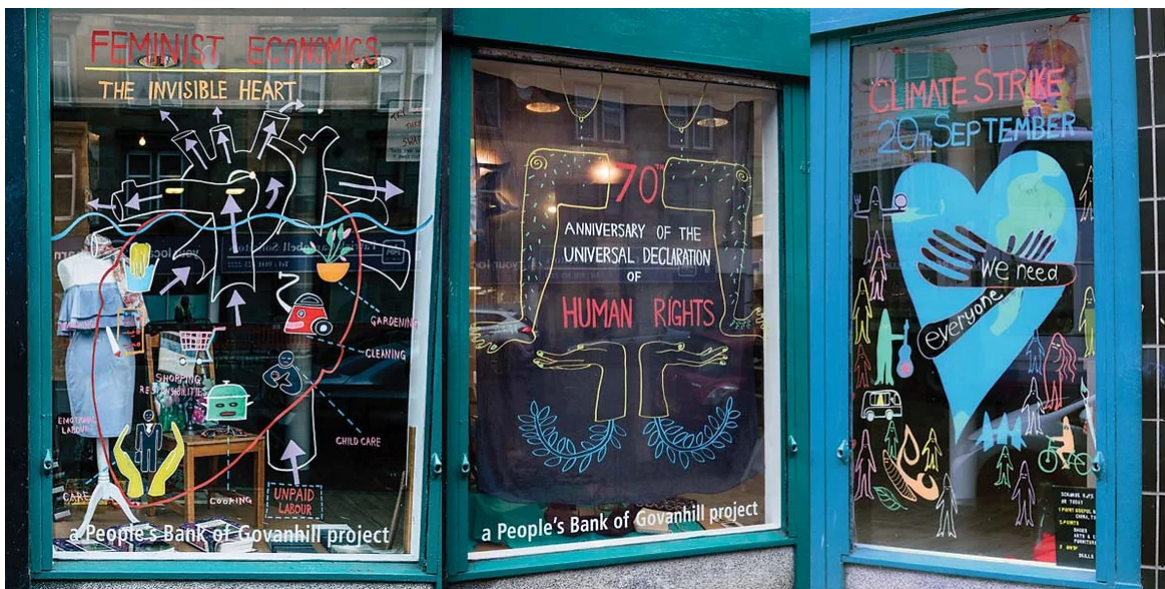 FEMINIST ECONOMICS
THE INVISIBLE HEART
GARDENING
CLEANING
SHOPPING
RESPONSIBILITIES
EMOTIONAL
LABOUR
CHILD CARE
CARE
COOKING
UNPAID
LABOUR
a People's Bank of Govanhill project
70TH
ANNIVERSARY OF THE
UNIVERSAL DECLARATION
OF
HUMAN RIGHTS
a People's Bank of Govanhill project
CLIMATE STRIKE
20TH SEPTEMBER
We need
everyone